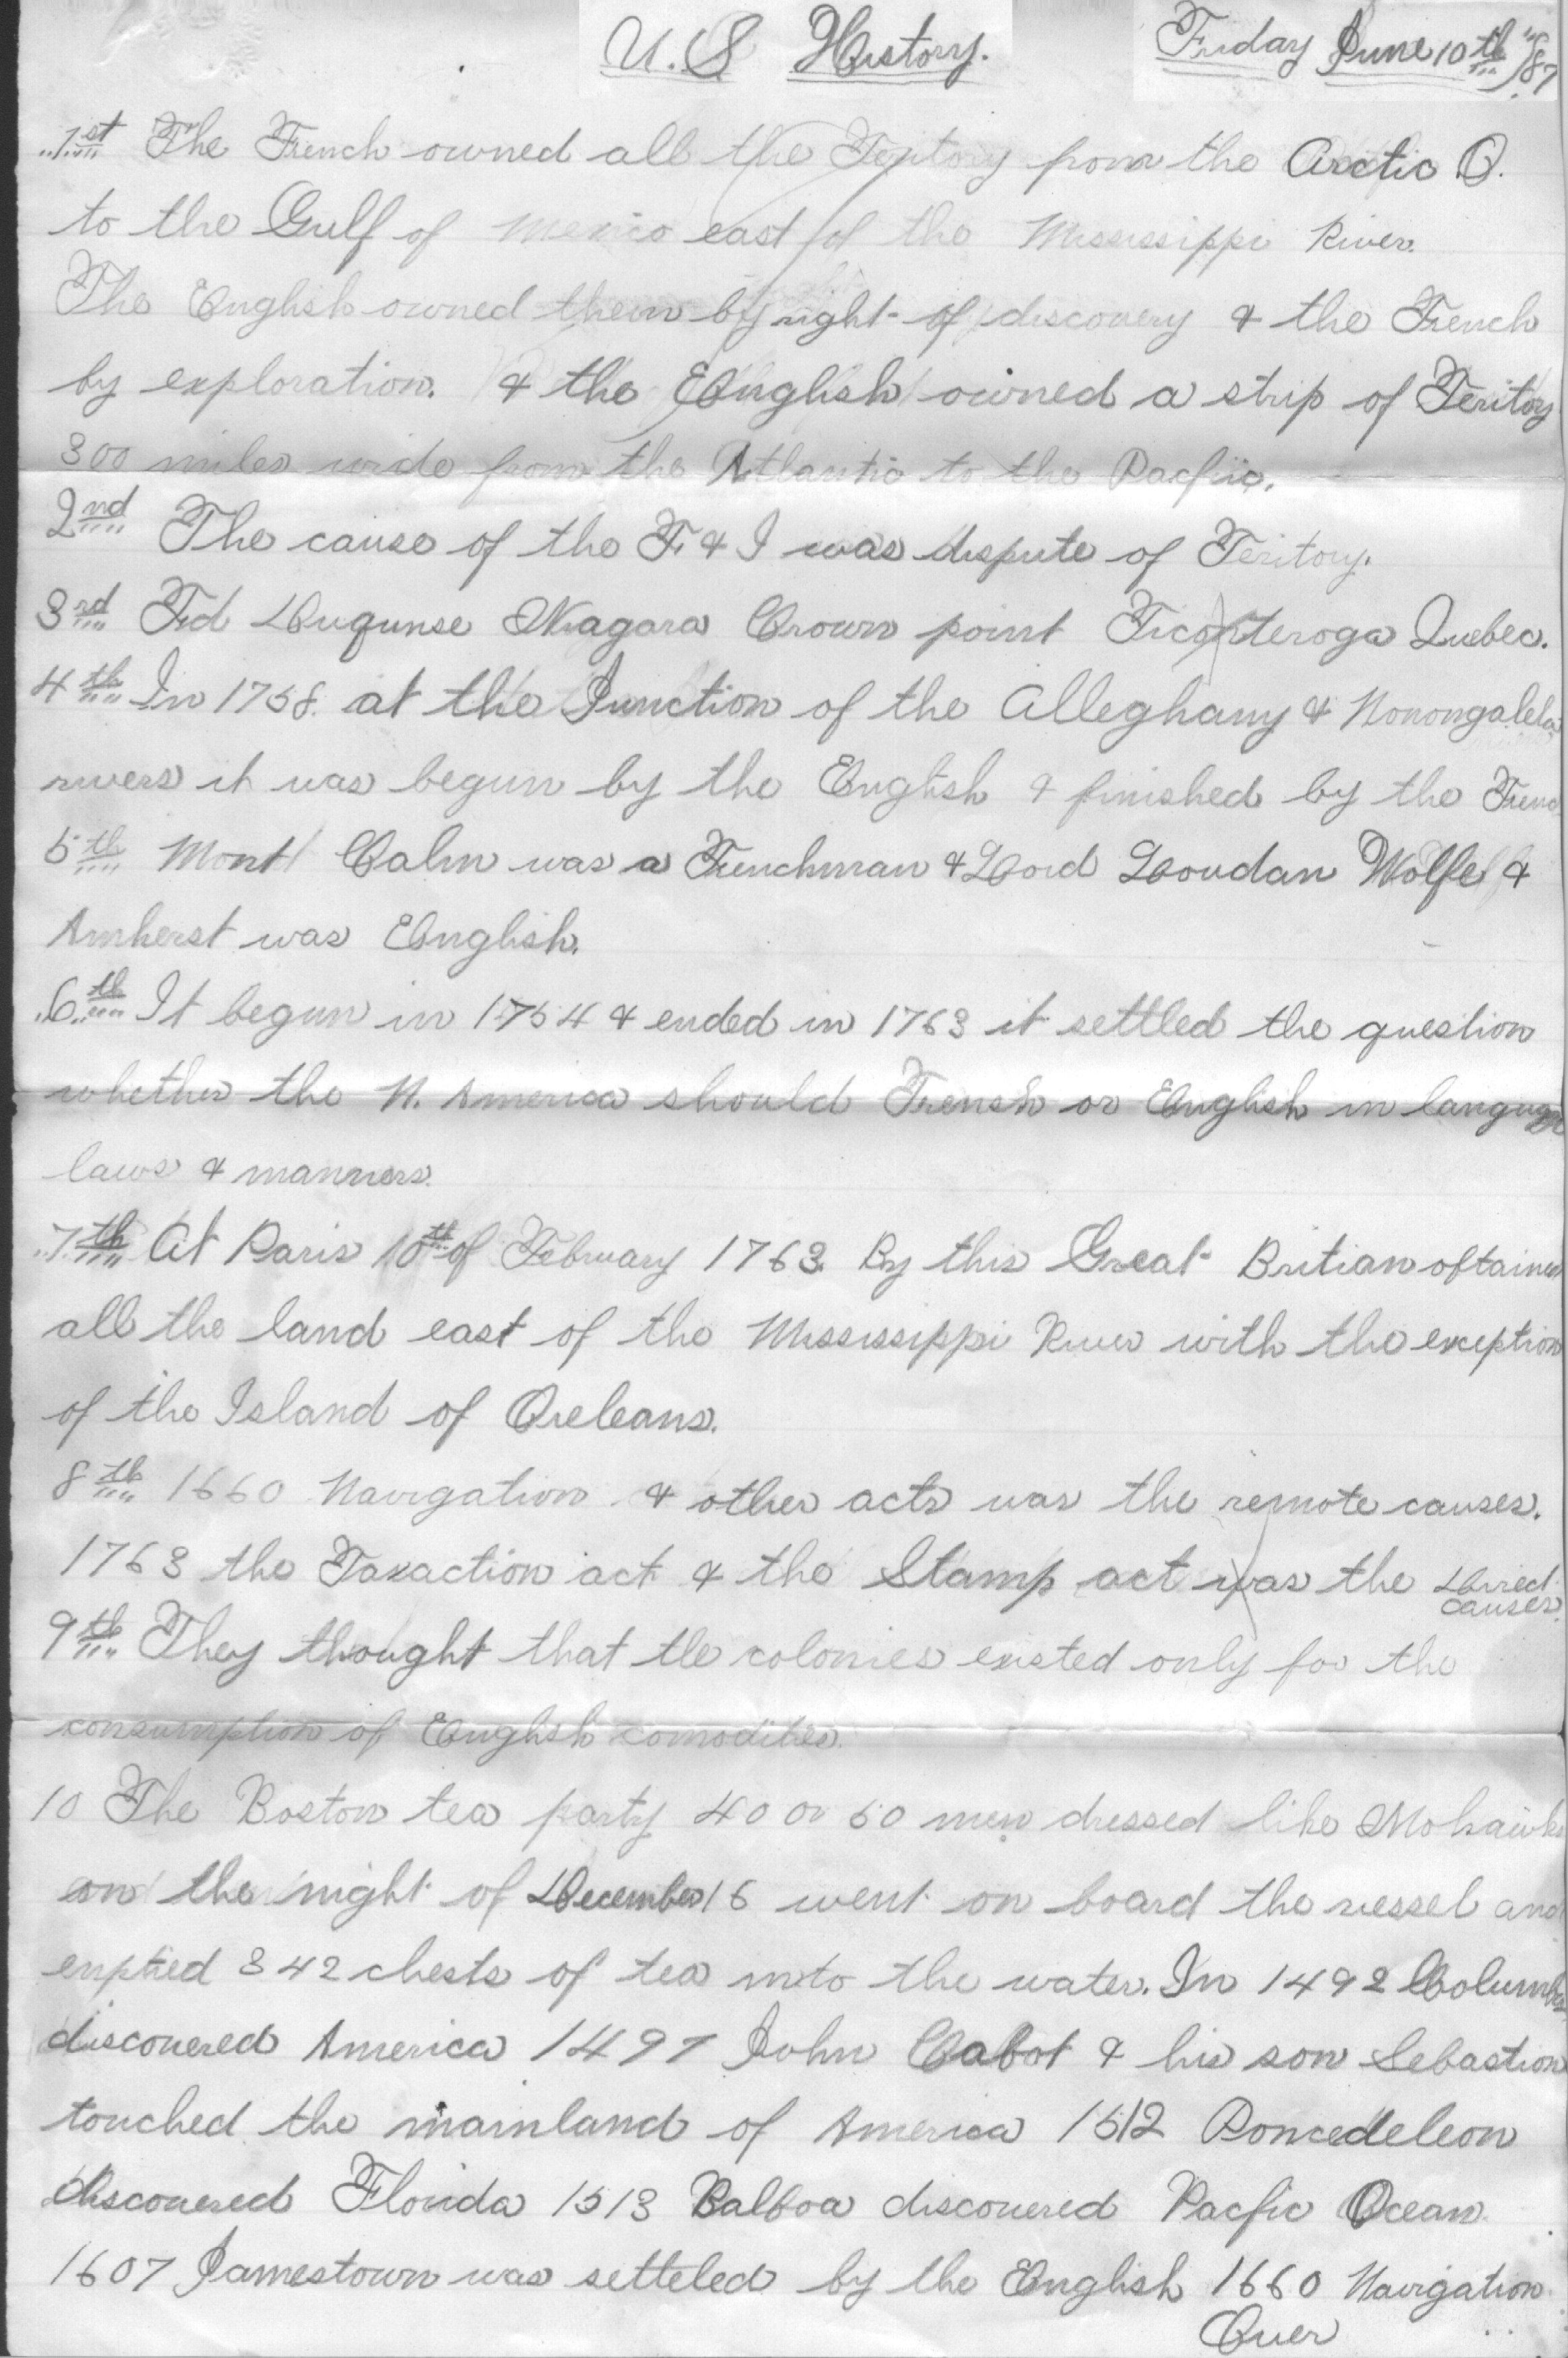 U.S History. Friday June 10th "/87
1st The French owned all the Teritory from the Arctic O.
to the Gulf of Mexico east of the Mississippi River.
The English owned them by right of discovery & the French
by exploration. & the English owned a strip of Teritory
300 miles wide from the Atlantic to the Pacfic.
2nd The cause of the F & I was dispute of Teritory.
3rd Ft Duqunse Niagara Crown point Ticonteroga Quebec.
4th In 1758. at the Junction of the Alleghany & Monongalela
rivers it was begun by the English & finished by the Frenc
5th Mont Calm was a Frenchman & Lord Loudan Wolfe &
Amherst was English.
6th It begun in 1754 & ended in 1763 it settled the question
whether the N. America should French or English in languge
laws & manners.
7th At Paris 10th of February 1763. By this Great Britian oftained
all the land east of the Mississippi River with the exception
of the Island of Orleans.
8th 1660 Navigation & other acts was the remote causes.
1763 the Taxaction act & the Stamp act was the Direct
causes.
9th They thought that the colonies existed only for the
consumption of English comodities.
10 The Boston tea party 40 or 50 men dressed like Mohawks
on the night of December 16 went on board the vessel and
emptied 342 chests of tea into the water. In 1492 Columbus
discovered America 1497 John Cabot & his son Sebastion
touched the mainland of America 1512 Poncedeleon
discovered Florida 1513 Balboa discovered Pacfic Ocean.
1607 Jamestown was setteled by the English 1660 Navigation
Over